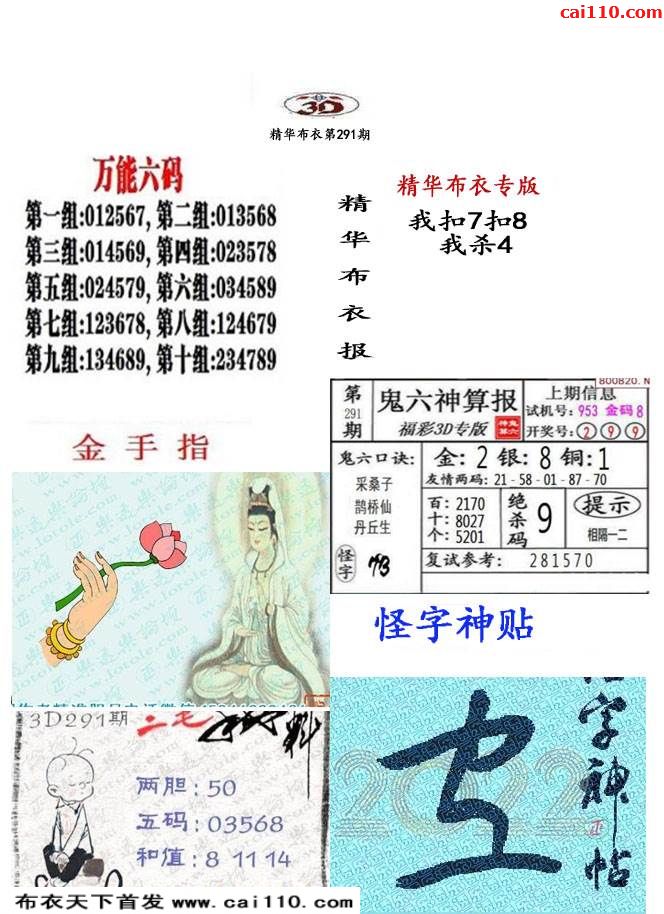 cai110.com
3D
精华布衣第291期
万能六码
第一组:012567, 第二组:013568
第三组:014569, 第四组:023578
第五组:024579, 第六组:034589
第七组:123678, 第八组:124679
第九组:134689, 第十组:234789
精华布衣报
精华布衣专版
我扣7扣8
我杀4
金手指
800820. N
第291期
鬼六神算报
福彩3D专版
上期信息
试机号: 953 金码 8
开奖号: 2 9 9
鬼六口诀:
采桑子
鹊桥仙
丹丘生
怪字
金: 2 银: 8 铜: 1
友情两码: 21-58-01-87-70
百: 2170
十: 8027
个: 5201
绝杀码 9
提示
相隔一二
复试参考: 281570
怪字神贴
3D291期
两胆: 50
五码: 03568
和值: 8 11 14
怪字神帖
2022
布衣天下首发 www.cai110.com